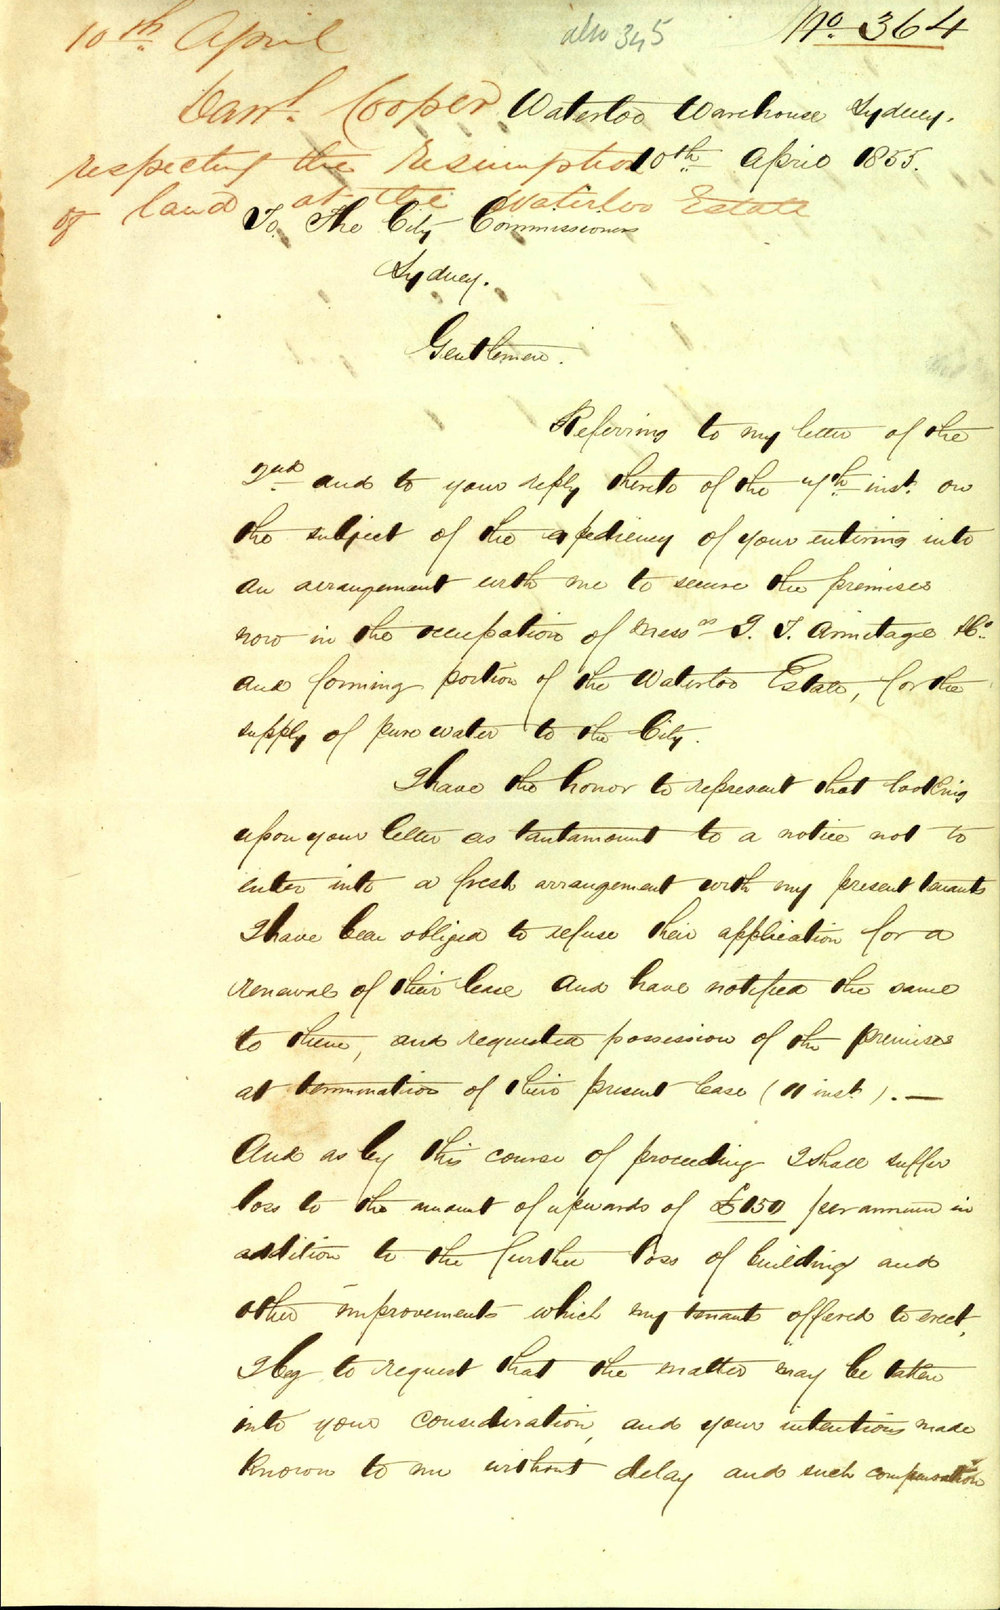 10th April
also 345
No. 364
Danl. Cooper
respecting the Resumption
of land at the Waterloo Estate
Waterloo Warehouse Sydney.
10th April 1855.
To The City Commissioners
Sydney.
Gentlemen.
Referring to my letter of the
2nd and to your reply thereto of the 7th inst. on
the subject of the expediency of your entering into
an arrangement with me to secure the premises
now in the occupation of Messrs T. T. Armitage & Co.
and forming portion of the Waterloo Estate, for the
supply of pure water to the City.
I have the honor to represent that looking
upon your letter as tantamount to a notice not to
enter into a fresh arrangement with my present tenants
I have been obliged to refuse their application for a
renewal of their lease and have notified the same
to them, and requested possession of the premises
at termination of their present lease (11 inst.). —
And as by this course of proceeding I shall suffer
loss to the amount of upwards of £150 per annum in
addition to the further loss of building and
other improvements which my tenants offered to erect,
I beg to request that the matter may be taken
into your consideration, and your intentions made
known to me without delay and such compensation